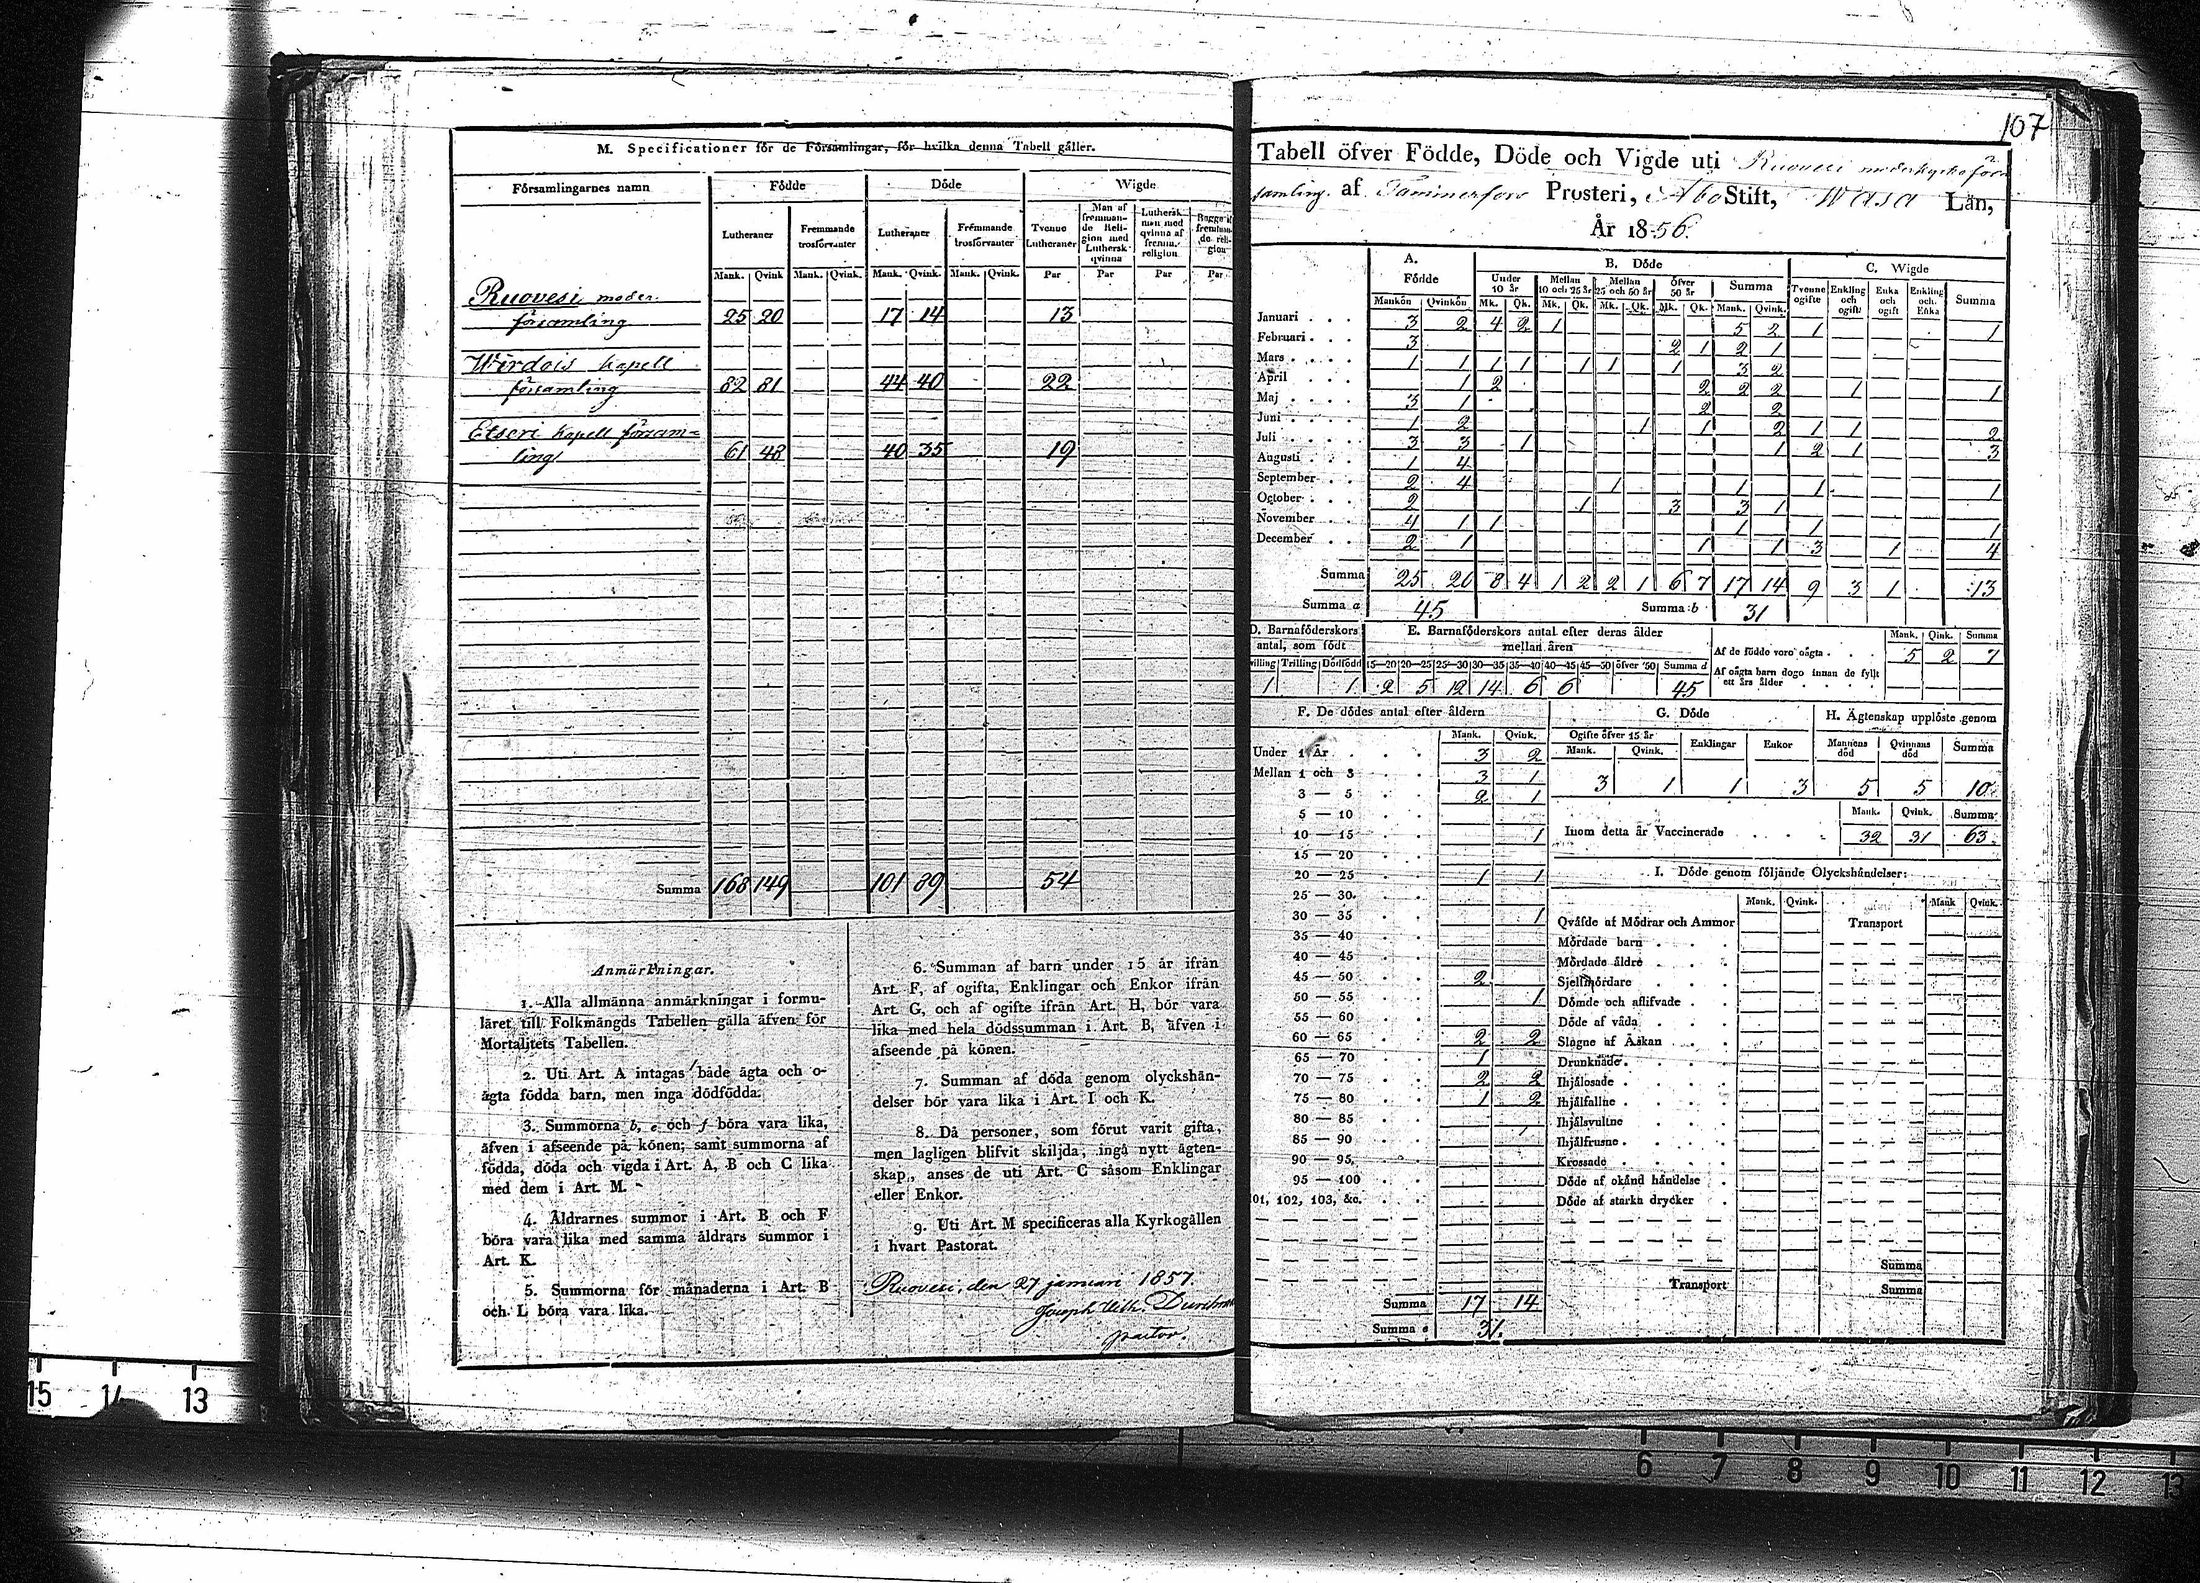 M. Specificationer för de Församlingar, för hvilka denna Tabell gäller.
Församlingarnes namn Födde Döde Wigde
Lutheraner Fremmande trosförvanter Lutheraner Fremmande trosförvanter Tvenne Lutheraner Man af fremmande Religion med Luthersk qvinna Luthersk man med qvinna af fremm. religion
Mank. Qvink Mank. Qvink. Mank. Qvink. Mank. Qvink. Par Par Par Par
Ruovesi moder-
församling 25 20 17 14 13
Wirdois kapell
församling 82 81 44 40 22
Etseri kapell försam=
ling 61 48 40 35 19
Summa 168 149 101 89 54
Anmärkningar.
1. Alla allmänna anmärkningar i formu-
läret till Folkmängds Tabellen gälla äfven för
Mortalitets Tabellen.
2. Uti Art. A intagas både ägta och o-
ägta födda barn, men inga dödfödda.
3. Summorna b, e och f böra vara lika,
äfven i afseende på könen; samt summorna af
födda, döda och vigda i Art. A, B och C lika
med dem i Art. M.
4. Åldrarnes summor i Art. B och F
böra vara lika med samma åldrars summor i
Art. K.
5. Summorna för månaderna i Art. B
och L böra vara lika.
6. Summan af barn under 15 år ifrån
Art. F, af ogifta, Enklingar och Enkor ifrån
Art. G, och af ogifte ifrån Art. H, bör vara
lika med hela dödssumman i Art. B, äfven i
afseende på könen.
7. Summan af döda genom olyckshän-
delser bör vara lika i Art. I och K.
8. Då personer, som förut varit gifta,
men lagligen blifvit skiljda, ingå nytt ägten-
skap, anses de uti Art. C såsom Enklingar
eller Enkor.
9. Uti Art. M specificeras alla Kyrkogällen
i hvart Pastorat.
Ruovesi, den 27 januari 1857.
Joseph Wilh.
pastor.
107
Tabell öfver Födde, Döde och Vigde uti Ruovesi moderkyrkoför
samling af Tammerfors Prosteri, Åbo Stift, Wasa Län,
År 1856.
A. Födde B. Döde C. Wigde
Under 10 år Mellan 10 och 25 år Mellan 25 och 50 år Öfver 50 år Summa Tvenne ogifte Enkling och ogift Enka och ogift Enkling och Enka Summa
Mankön Qvinkön Mk. Qk. Mk. Qk. Mk. Qk. Mk. Qk. Mank. Qvink.
Januari 3 2 4 2 1 5 2 1 1
Februari 3 2 1 2 1
Mars 1 1 1 1 1 1 1 3 2
April 1 2 2 2 2 1 1
Maj 3 1 2 2
Juni 1 2 1 1 2 1 1 2
Juli 3 3 1 1 2 1 3
Augusti 1 4
September 2 4 1 1 1 1
October 2 1 3 3 1
November 4 1 1 1 1 1
December 2 1 1 1 3 1 4
Summa 25 20 8 4 1 2 2 1 6 7 17 14 9 3 1 13
Summa a 45 Summa b 31
D. Barnaföderskors antal, som födt
Tvilling Trilling Dödfödd
1 1
E. Barnaföderskors antal efter deras ålder
mellan åren
15—20 20—25 25—30 30—35 35—40 40—45 45—50 öfver 50 Summa d
2 5 12 14 6 6 45
Mank. Qink. Summa
Af de födde voro oägta 5 2 7
Af oägta barn dogo innan de fyllt
ett års ålder
F. De dödes antal efter åldern
Mank. Qvink.
Under 1 År 3 2
Mellan 1 och 3 3 1
3 — 5 2 1
5 — 10
10 — 15 1
15 — 20
20 — 25 1 1
25 — 30
30 — 35 1
35 — 40
40 — 45
45 — 50 2
50 — 55 1
55 — 60
60 — 65 2 2
65 — 70 1
70 — 75 2 2
75 — 80 1 2
80 — 85
85 — 90 1
90 — 95
95 — 100
101, 102, 103, &c.
Summa 17 14
Summa e 31.
G. Döde
Ogifte öfver 15 år Enklingar Enkor
Mank. Qvink.
3 1 1 3
H. Ägtenskap upplöste genom
Mannens död Qvinnans död Summa
5 5 10
Mank. Qvink. Summa
Inom detta år Vaccinerade 32 31 63
I. Döde genom följande Olyckshändelser:
Mank. Qvink. Mank Qvink.
Qväfde af Mödrar och Ammor Transport
Mördade barn
Mördade äldre
Sjelfmördare
Dömde och aflifvade
Döde af våda
Slagne af Åskan
Drunknade
Ihjälosade
Ihjälfallne
Ihjälsvultne
Ihjälfrusne
Krossade
Döde af okänd händelse
Döde af starka drycker
Summa
Transport Summa
15 14 13
6 7 8 9 10 11 12 13